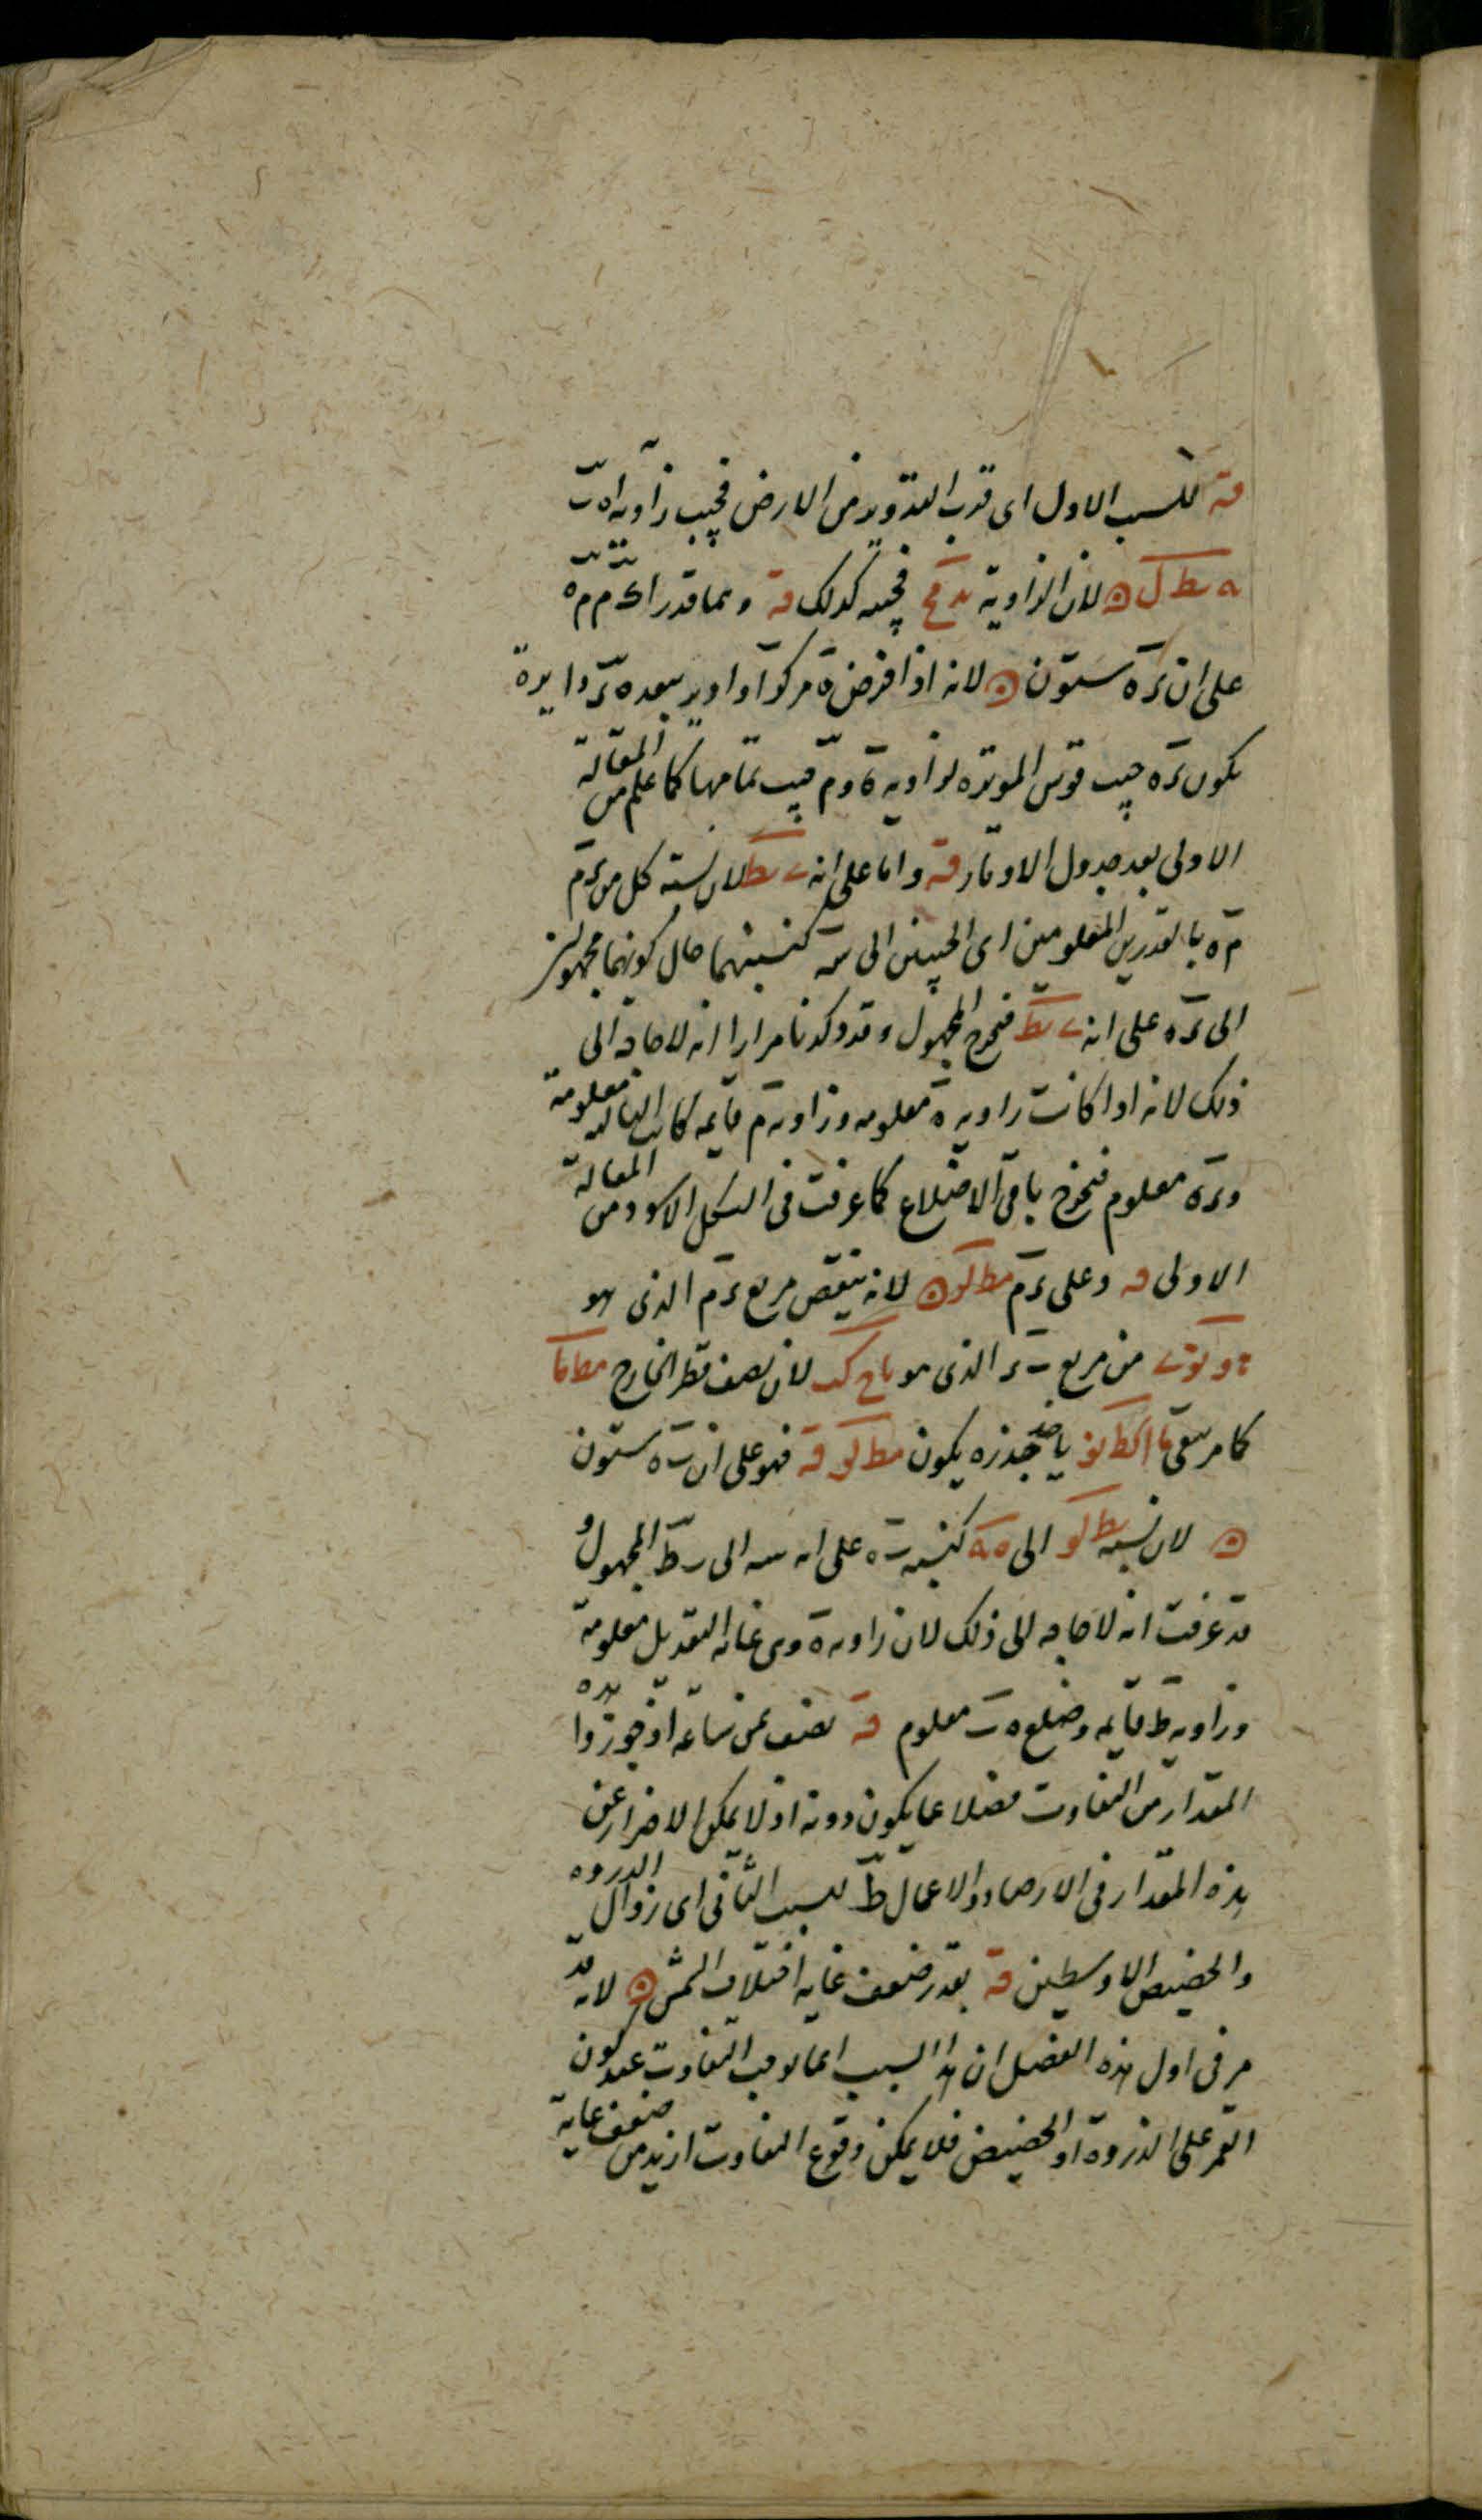 قه للسبب الاول اى قرب التدوير من الارض فجيب زاويه اه ب
لان الزاوية فجيبه كذلك قه وبما قدرا
على ان ره ستون لانه اذا فرض ه مركزا وادير ببعد ه ر دايرة
يكون ره جيب قوس الموترة لزاوية ة و م جيب تمامها كما علم من المقالة
الاولى بعد جدول الاوتار قه واما على انه لان نسبة كل من رم
م ه بالقدرين المعلومين اى الجيبين الى سه كنسبتهما حال كونهما مجهولين
الى ره على انه فيخرج المجهول وقد وكدنا مرارا انه لا حاجة الى
ذلك لانه اذا كانت زاوية ه معلومه وزاوية م قايمه كانت الثالثة معلومة
و ره معلوم فيخرج باقى الاضلاع كما عرفت فى الشكل من المقالة
الاولى قه وعلى رم مط لو لانه ينقص مربع رم الذى هو
من مربع ب ر الذى هو لان نصف قطر الخارج مط ما
كما مر بقى جذره يكون مط لو قه فهو على ان ب ه ستون
لان نسبة مط لو الى كنسبة ب ه على انه سه الى ب ط المجهول و
قد عرفت انه لا حاجه الى ذلك لان زاوية ة وهى غاية التعديل معلومة
وزاوية ط قايمه وضلع ه ب معلوم قه نصف ثمن ساعة اذ جوزوا هذه
المقدار من التفاوت فضلا عما يكون دونه اذ لا يمكن الاحتراز عن
هذه المقدار فى الارصاد والاعمال ط للسبب الثانى اى زوال الذروه
والحضيض الاوسطين قه بقدر ضعف غاية اختلاف الشمس لانه قد
مر فى اول هذه الفصل ان هذا السبب انما يوجب التفاوت عند كون
القمر على الذروة او الحضيض فلا يمكن وقوع التفاوت ازيد من ضعف غاية